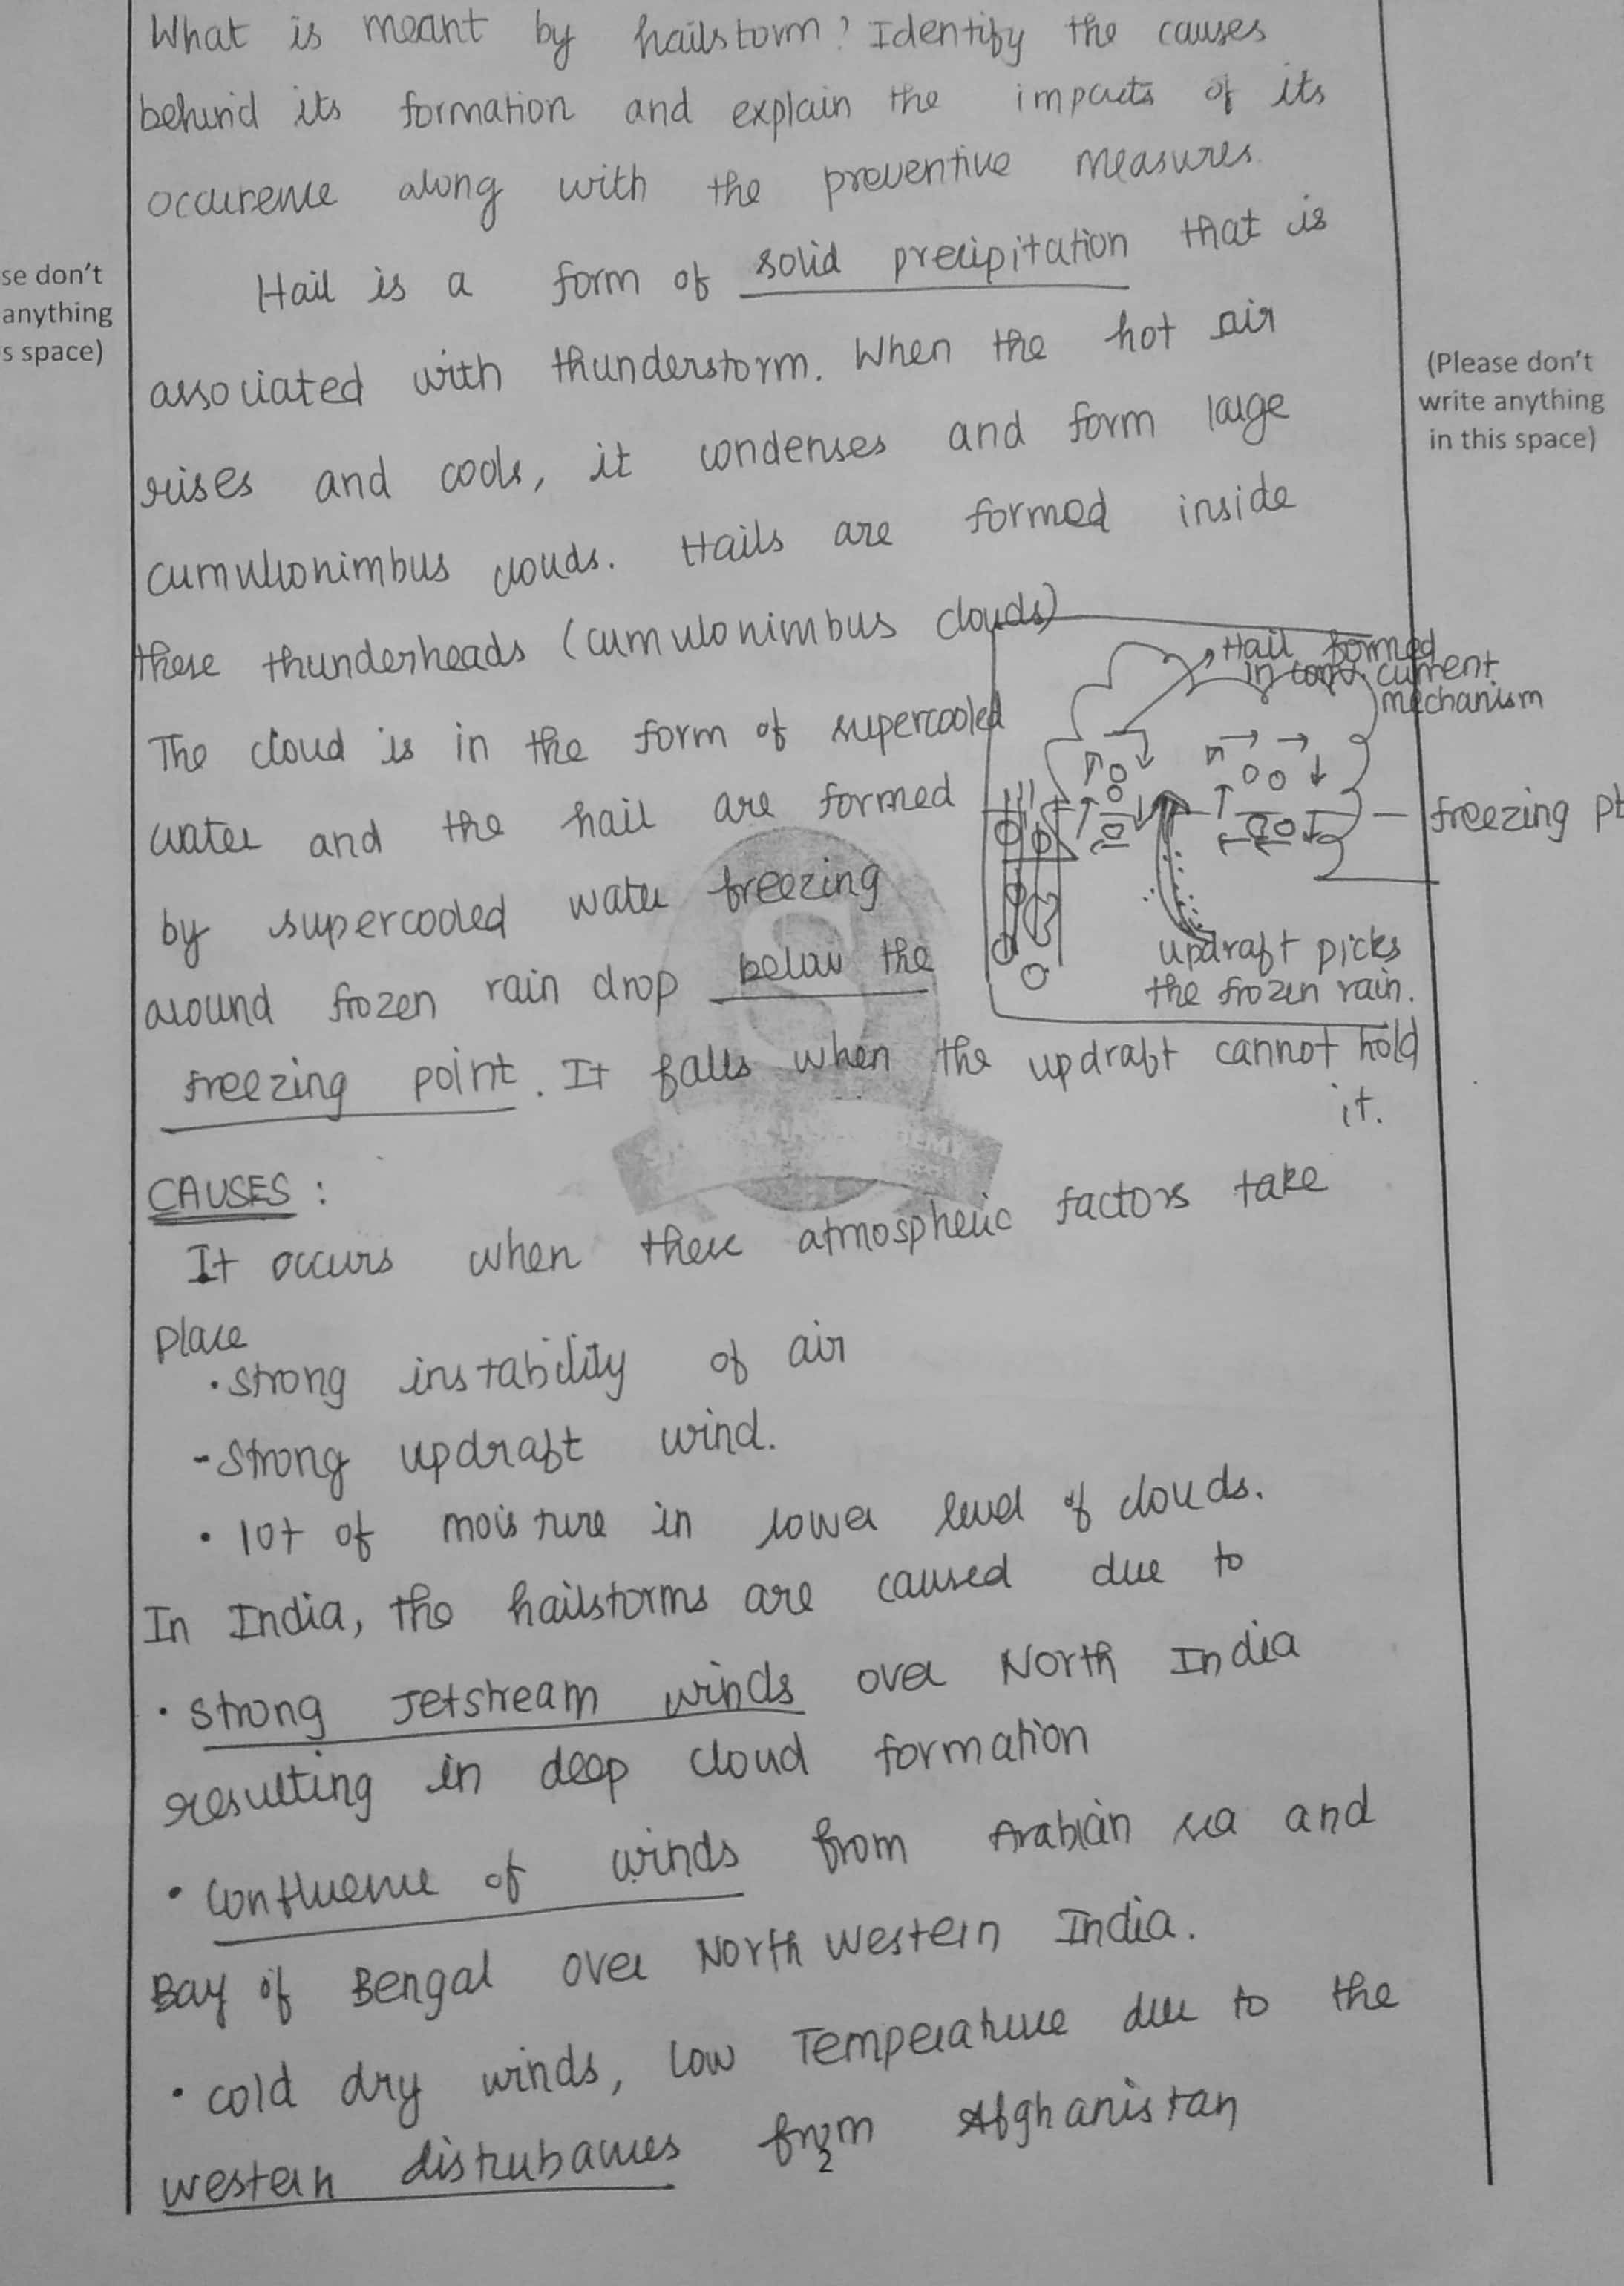 What is meant by hailstorm? Identify the causes
behind its formation and explain the impacts of its
occurence along with the preventive measures.
Hail is a form of solid precipitation that is
associated with thunderstorm. When the hot air
rises and cools, it condenses and form large
cumulonimbus clouds. Hails are formed inside
these thunderheads (cumulonimbus clouds)
The cloud is in the form of supercooled
water and the hail are formed
by supercooled water freezing
around frozen rain drop below the
freezing point. It falls when the updraft cannot hold
it.
Hail formed
in conv. current
mechanism
freezing pt
updraft picks
the frozen rain.
CAUSES :
It occurs when these atmospheric factors take
place
• strong instability of air
- strong updraft wind.
• lot of moisture in lower level of clouds.
In India, the hailstorms are caused due to
• strong Jetstream winds over North India
resulting in deep cloud formation
• confluence of winds from Arabian sea and
Bay of Bengal over North western India.
• cold dry winds, low Temperature due to the
western distrubances from Afghanistan
2
se don't
anything
s space)
(Please don't
write anything
in this space)